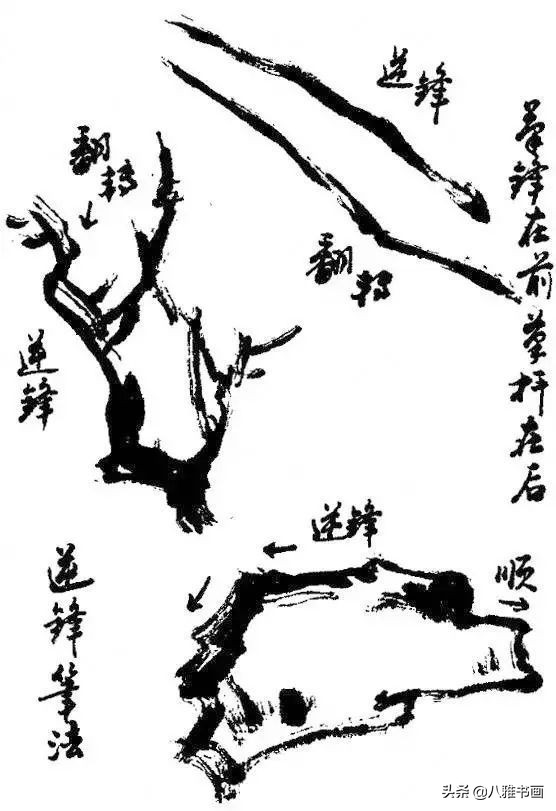 逆锋
笔锋在前笔杆在后
翻转
翻转
逆锋
逆锋
顺
逆锋笔法
头条 @八雅书画